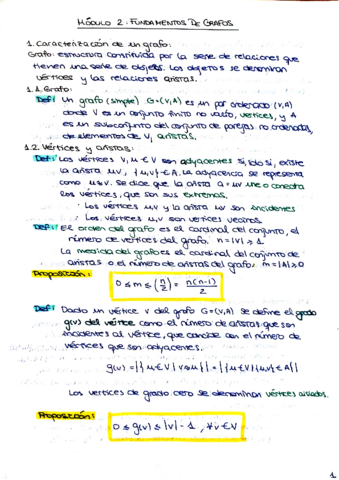 MÓDULO 2: FUNDAMENTOS DE GRAFOS
1. Caracterización de un grafo:
Grafo: estructura constituida por la serie de relaciones que
tienen una serie de objetos. Los objetos se denominan
vértices y las relaciones aristas.
1.1. Grafo:
Def: Un grafo (simple) G=(V,A) es un par ordenado (V,A)
donde V es un conjunto finito no vacío, vértices, y A
es un subconjunto del conjunto de parejas no ordenadas,
de elementos de V, aristas.
1.2. Vértices y aristas:
Def: Los vértices V, u ∈ V son adyacentes si, y solo si, existe
la arista uv, {u,v} ∈ A. La adyacencia se representa
como u~v. Se dice que la arista a = uv une o conecta
los vértices, que son sus extremos.
· Los vértices u,v y la arista uv son incidentes
· Los vértices u,v son vértices vecinos.
Def: El orden del grafo es el cardinal del conjunto, el
número de vértices del grafo. n = |V| ≥ 1
La medida del grafo es el cardinal del conjunto de
aristas o el número de aristas del grafo. m = |A| ≥ 0
Proposición:
0 ≤ m ≤ (n 2) = n(n-1)/2
Def: Dado un vértice v del grafo G=(V,A) se define el grado
g(v) del vértice como el número de aristas que son
incidentes al vértice, que coincide con el número de
vértices que son adyacentes.
g(v) = |{u ∈ V | v~u}| = |{u ∈ V | {u,v} ∈ A}|
Los vértices de grado cero se denominan vértices aislados.
Proposición:
0 ≤ g(v) ≤ |V| - 1, ∀v ∈ V
1